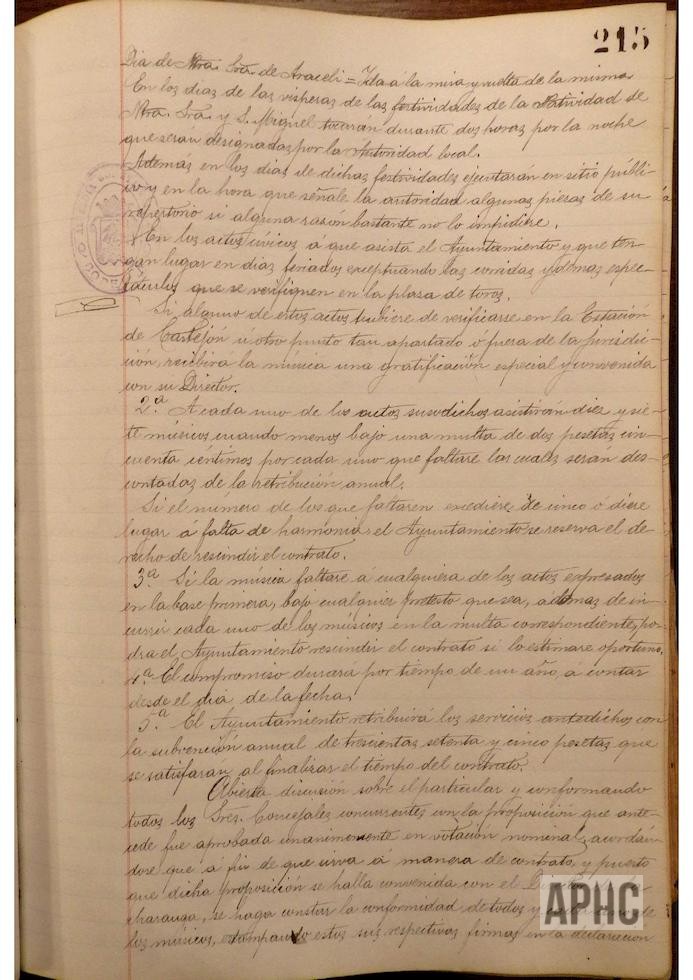 215
Dia de Ntra. Sra. de Araceli = Ida a la misa y vuelta de la misma
En los dias de las visperas de las festividades de la Natividad de
Ntra. Sra. y S. Miguel tocarán durante dos horas por la noche
que serán designadas por la Autoridad local.
Además en los dias de dichas festividades ejecutarán en sitio públi-
co y en la hora que señale la autoridad algunas piezas de su
repertorio si alguna razón bastante no lo impidiere.
En los actos civicos á que asista el Ayuntamiento y que ten-
gan lugar en dias feriados exceptuando las corridas y demas espec-
táculos que se verifiquen en la plaza de toros.
Si alguno de estos actos hubiere de verificarse en la Estación
de Castejón ú otro punto tan apartado ó fuera de la jurisdic-
ción, recibira la música una gratificación especial y convenida
con su Director.
2.ª A cada uno de los actos susodichos asistirán diez y sie-
te músicos cuando menos bajo una multa de dos pesetas cin-
cuenta céntimos por cada uno que faltare las cuales serán des-
contadas de la retribución anual.
Si el número de los que faltaren excediere de cinco ó diere
lugar á falta de harmonia el Ayuntamiento se reserva el de-
recho de rescindir el contrato.
3.ª Si la música faltare á cualquiera de los actos expresados
en la base primera, bajo cualquier pretesto que sea, ademas de in-
currir cada uno de los músicos en la multa correspondiente, po-
dra el Ayuntamiento rescindir el contrato si lo estimare oportuno.
4.ª El compromiso durará por tiempo de un año, á contar
desde el dia de la fecha.
5.ª El Ayuntamiento retribuirá los servicios antedichos con
la subvención anual de trescientas setenta y cinco pesetas que
se satisfaran al finalizar el tiempo del contrato.
Abierta discusión sobre el particular y conformando
todos los Sres. Concejales concurrentes con la proposición que ante-
cede fue aprobada unanimemente en votación nominal, acordán-
dose que á fin de que sirva á manera de contrato, y puesto
que dicha proposición se halla convenida con el
charanga, se haga constar la conformidad de todos y de
los músicos, estampando estos sus respectivas firmas en la declaración
APHC